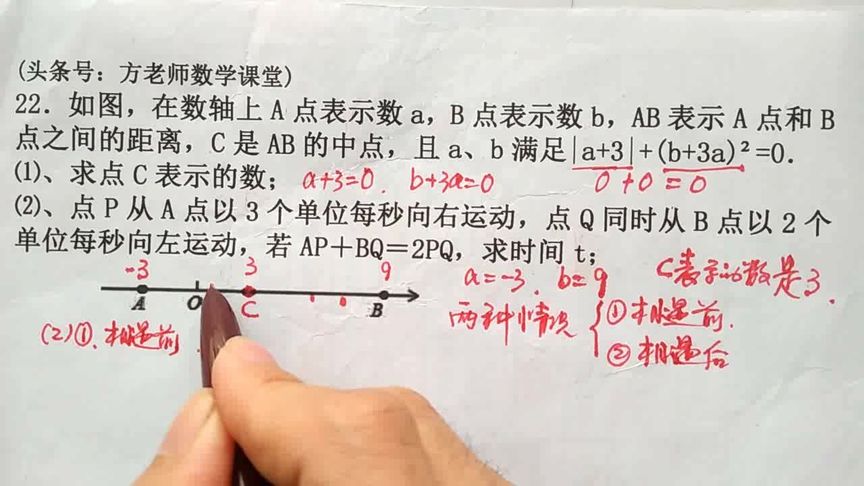 (头条号：方老师数学课堂)
22．如图，在数轴上 A 点表示数 a，B 点表示数 b，AB 表示 A 点和 B
点之间的距离，C 是 AB 的中点，且 a、b 满足|a+3|+(b+3a)²=0．
⑴、求点 C 表示的数； a+3=0． b+3a=0 0+0=0
⑵、点 P 从 A 点以 3 个单位每秒向右运动，点 Q 同时从 B 点以 2 个
单位每秒向左运动，若 AP＋BQ＝2PQ，求时间 t；
-3 3 9 a=-3． b=9 C表示的数是3．
A O C B 两种情况 ①相遇前．
(2)①、相遇前 ②相遇后